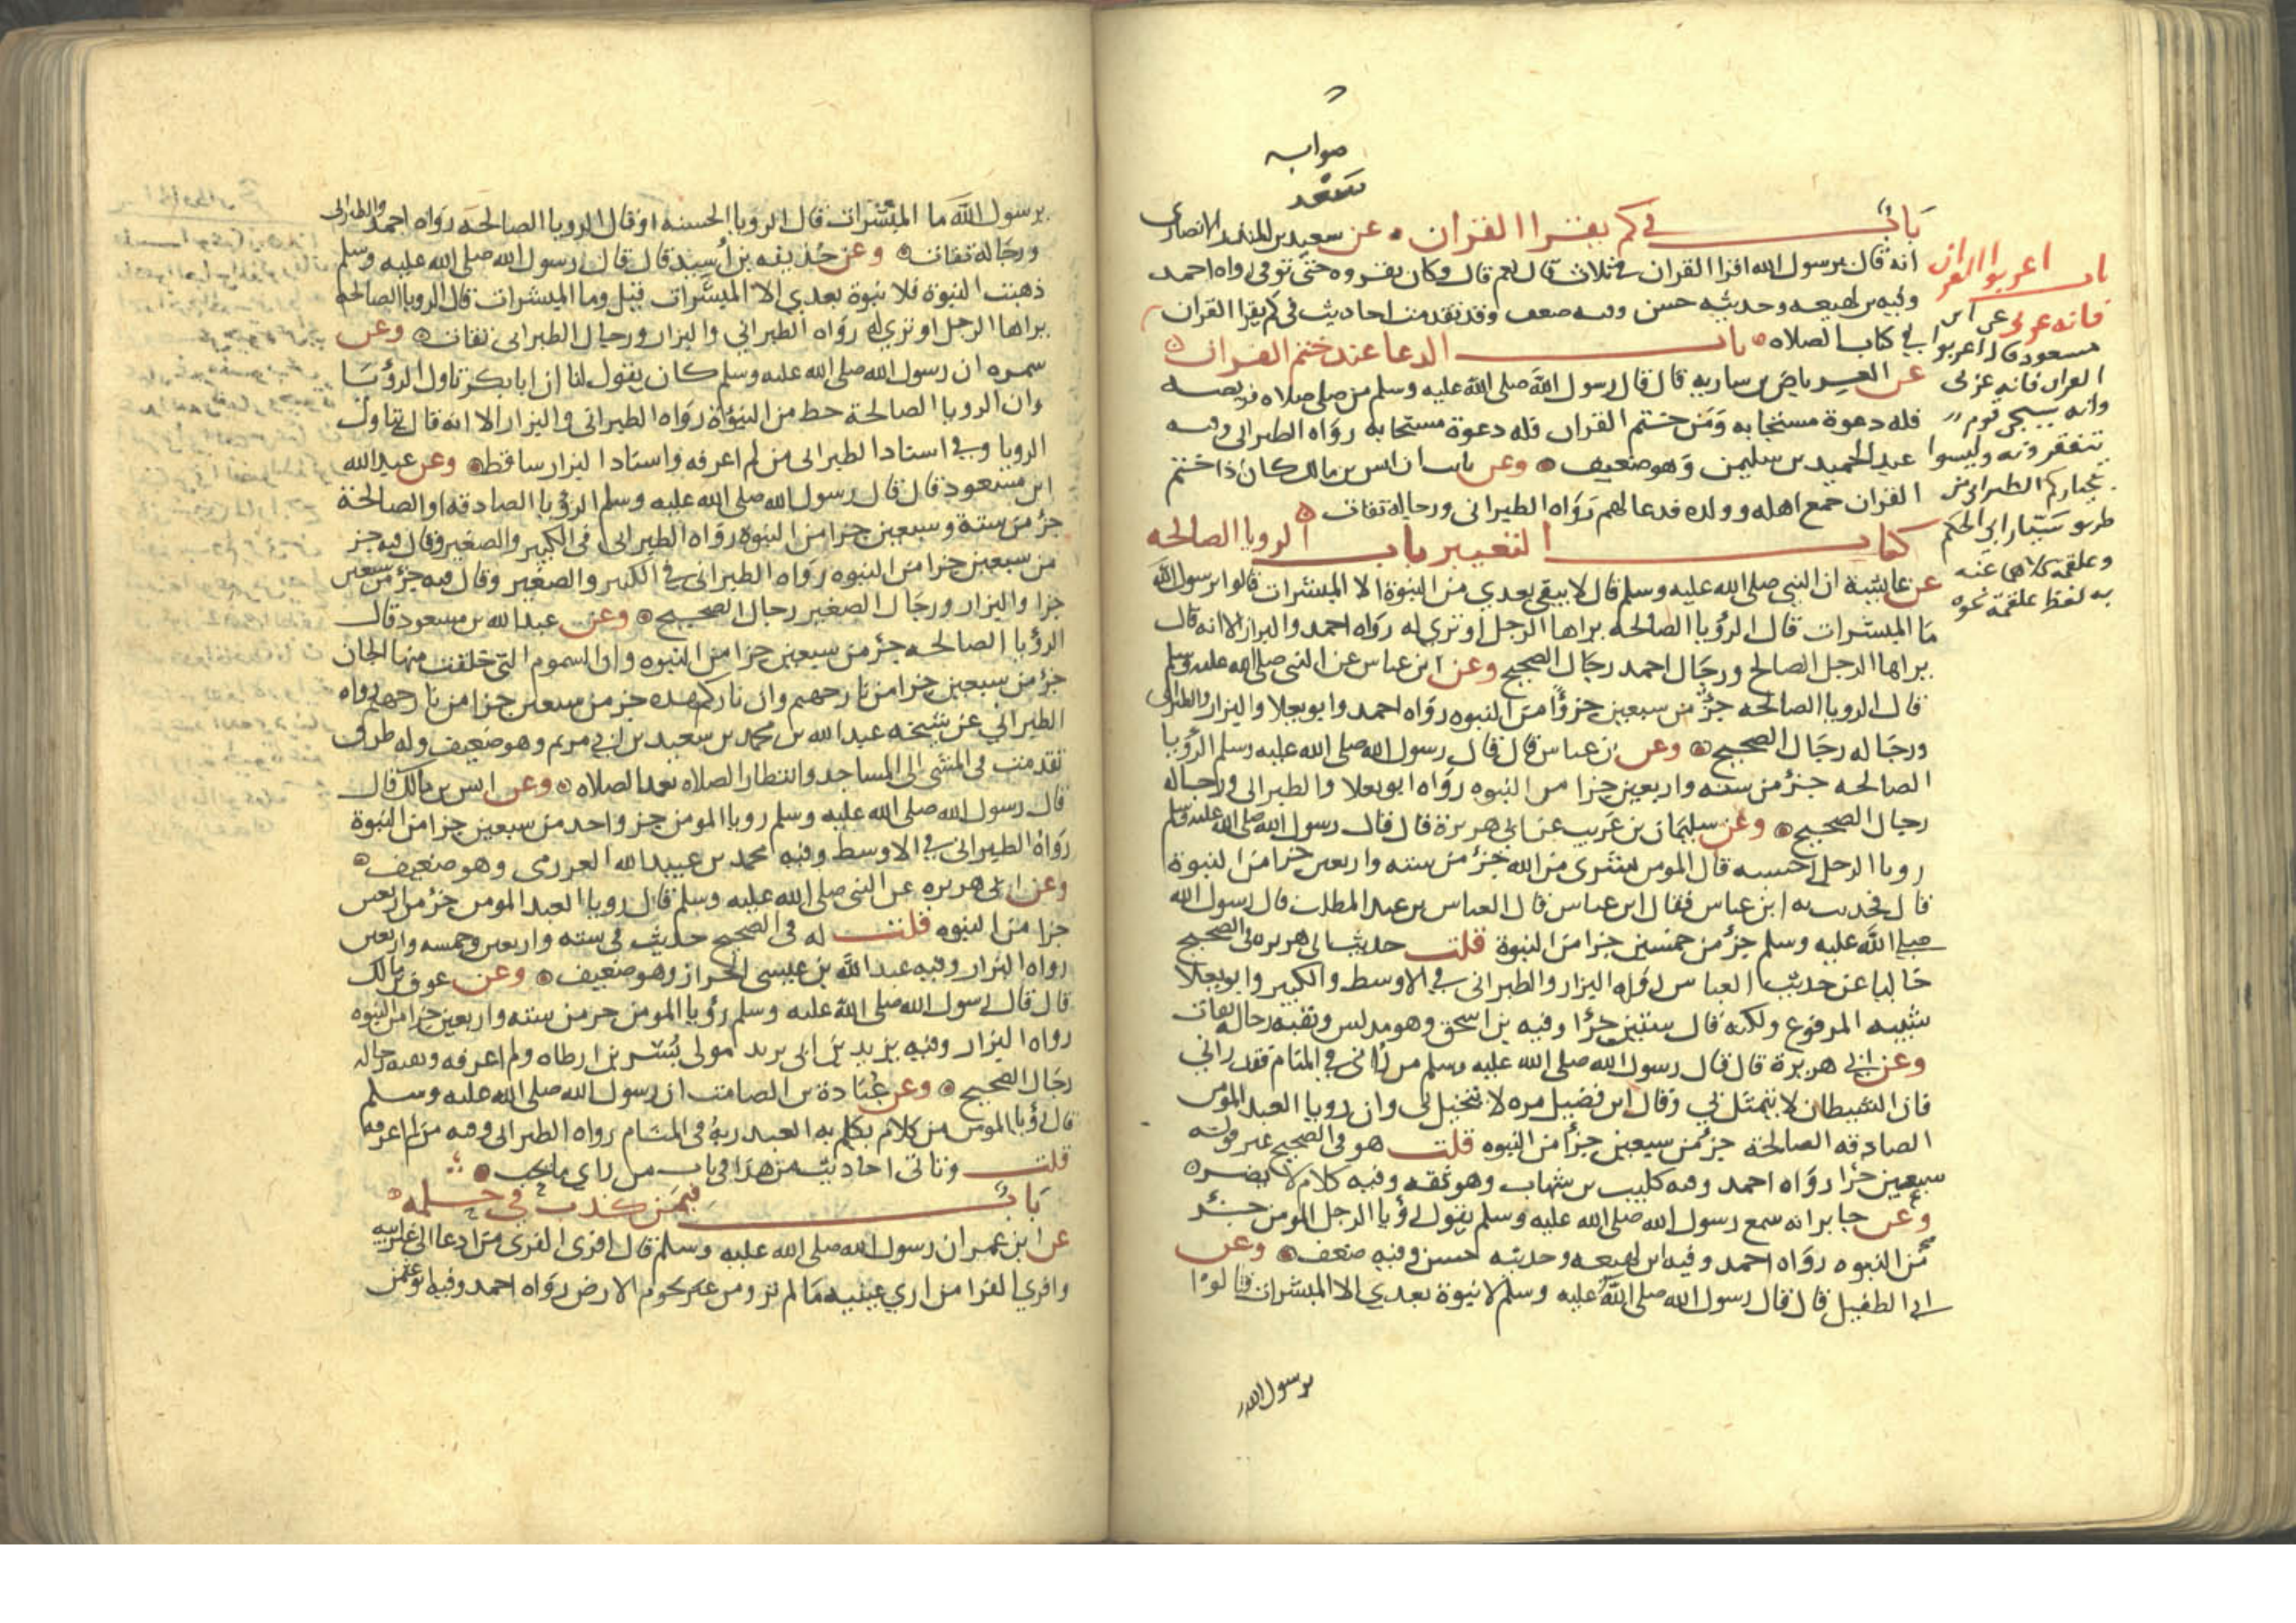 صوابه
سعد
باب في كم يقرا القران عن سعيد بن المنذر الانصاري
انه قال يرسول الله اقرا القران في ثلاث قال نعم قال وكان يقروه حتى توفي رواه احمد
وفيه بن لهيعه وحديثه حسن وفيه ضعف وقد تقدمت احاديث في كم يقرا القران
في كتاب الصلاه باب الدعا عند ختم القران
عن العرباض بن ساريه قال قال رسول الله صلى الله عليه وسلم من صلى صلاه فريضه
فله دعوة مستجابه ومن ختم القران فله دعوة مستجابه رواه الطبراني وفيه
عبد الحميد بن سليمن وهو ضعيف وعن ثابت ان انس بن مالك كان اذا ختم
القران جمع اهله وولده فدعا لهم رواه الطبراني ورجاله ثقات
كتاب التعبير باب الرويا الصالحه
عن عايشة ان النبي صلى الله عليه وسلم قال لا يبقى بعدي من النبوة الا المبشرات قالوا يرسول الله
ما المبشرات قال الرؤيا الصالحه يراها الرجل او ترى له رواه احمد والبزار الا انه قال
يراها الرجل الصالح ورجال احمد رجال الصحيح وعن ابن عباس عن النبي صلى الله عليه وسلم
قال الرويا الصالحه جزؤ من سبعين جزؤا من النبوه رواه احمد وابو يعلا والبزار والطبراني
ورجاله رجال الصحيح وعن بن عباس قال قال رسول الله صلى الله عليه وسلم الرؤيا
الصالحه جزؤ من سته واربعين جزا من النبوه رواه ابو يعلا والطبراني ورجاله
رجال الصحيح وعن سليمان بن عريب عن ابي هريرة قال قال رسول الله صلى الله عليه وسلم
رويا الرجل الحسنه قال المومن بشرى من الله جزؤ من سته واربعين جزا من النبوة
قال فحدثت به ابن عباس فقال ابن عباس قال العباس بن عبد المطلب قال رسول الله
صلى الله عليه وسلم جزؤ من خمسين جزا من النبوة قلت حديث ابي هريره في الصحيح
خاليا عن حديث العباس رواه البزار والطبراني في الاوسط والكبير وابو يعلا
شبيه المرفوع ولكنه قال ستين جزؤا وفيه بن اسحق وهو مدلس وبقيه رجاله ثقات
وعن ابي هريرة قال قال رسول الله صلى الله عليه وسلم من راني في المنام فقد راني
فان الشيطان لا يتمثل بي وقال ابن فضيل مره لا يتخيل بي وان رويا العبد المومن
الصادقه الصالحة جزؤ من سبعين جزؤا من النبوه قلت هو في الصحيح غير قوله
سبعين جزا رواه احمد وفيه كليب بن شهاب وهو ثقه وفيه كلام لا يضره
وعن جابر انه سمع رسول الله صلى الله عليه وسلم يقول رؤيا الرجل المومن جزؤ
من النبوه رواه احمد وفيه ابن لهيعه وحديثه حسن وفيه ضعف وعن
ابي الطفيل قال قال رسول الله صلى الله عليه وسلم لا نبوة بعدي الا المبشرات قالوا
يرسول الله
باب اعربوا القران
فانه عربي عن ابن
مسعود قال اعربوا
القران فانه عربي
وانه سيجي قوم
يثقفونه وليسوا
بخياركم الطبراني من
طريق سيار ابي الحكم
وعلقمه كلاهما عنه
به لفظ علقمة نحوه
يرسول الله ما المبشرات قال الرويا الحسنه او قال الرويا الصالحه رواه احمد والطبراني
ورجاله ثقات وعن حذيفه بن أسيد قال قال رسول الله صلى الله عليه وسلم
ذهبت النبوة فلا نبوة بعدي الا المبشرات قيل وما المبشرات قال الرويا الصالحه
يراها الرجل او ترى له رواه الطبراني والبزار ورجال الطبراني ثقات وعن
سمره ان رسول الله صلى الله عليه وسلم كان يقول لنا ان ابا بكر تاول الرؤيا
وان الرويا الصالحة حظ من النبوة رواه الطبراني والبزار الا انه قال يتاول
الرويا وفي اسناد الطبراني من لم اعرفه واسناد البزار ساقط وعن عبد الله
ابن مسعود قال قال رسول الله صلى الله عليه وسلم الرؤيا الصادقه او الصالحة
جزؤ من ستة وسبعين جزا من النبوه رواه الطبراني في الكبير والصغير وقال فيه جز
من سبعين جزا من النبوه رواه الطبراني في الكبير والصغير وقال فيه جزؤ من سبعين
جزا والبزار ورجال الصغير رجال الصحيح وعن عبد الله بن مسعود قال
الرؤيا الصالحه جزؤ من سبعين جزا من النبوه وان السموم التي خلقت منها الجان
جزؤ من سبعين جزا من نار جهنم وان ناركم هذه جز من سبعين جزا من نار جهنم رواه
الطبراني عن شيخه عبد الله بن محمد بن سعيد بن ابي مريم وهو ضعيف وله طرق
تقدمت في المشي الى المساجد وانتظار الصلاه بعد الصلاه وعن انس بن مالك قال
قال رسول الله صلى الله عليه وسلم رويا المومن جز واحد من سبعين جزا من النبوة
رواه الطبراني في الاوسط وفيه محمد بن عبيد الله العرزمي وهو ضعيف
وعن ابي هريره عن النبي صلى الله عليه وسلم قال رويا العبد المومن جزؤ من اربعين
جزا من النبوه قلت له في الصحيح حديث في سته واربعين وخمسه واربعين
رواه البزار وفيه عبد الله بن عيسى الخزاز وهو ضعيف وعن عوف بن مالك
قال قال رسول الله صلى الله عليه وسلم رؤيا المومن جز من سته واربعين جزا من النبوه
رواه البزار وفيه يزيد بن ابي يزيد مولى بسر بن ارطاه ولم اعرفه وبقيه رجاله
رجال الصحيح وعن عبادة بن الصامت ان رسول الله صلى الله عليه وسلم
قال رؤيا المومن من كلام يكلم به العبد ربه في المنام رواه الطبراني وفيه من لم اعرفه
قلت وتاتي احاديث من هذا في باب من راى ما يحب
باب فيمن كذب في حلمه
عن ابن عمر ان رسول الله صلى الله عليه وسلم قال افرى الفرى من ادعا الى غير ابيه
وافرى الفرا من اري عينيه ما لم تر ومن غير تخوم الارض رواه احمد وفيه ابو عثمن